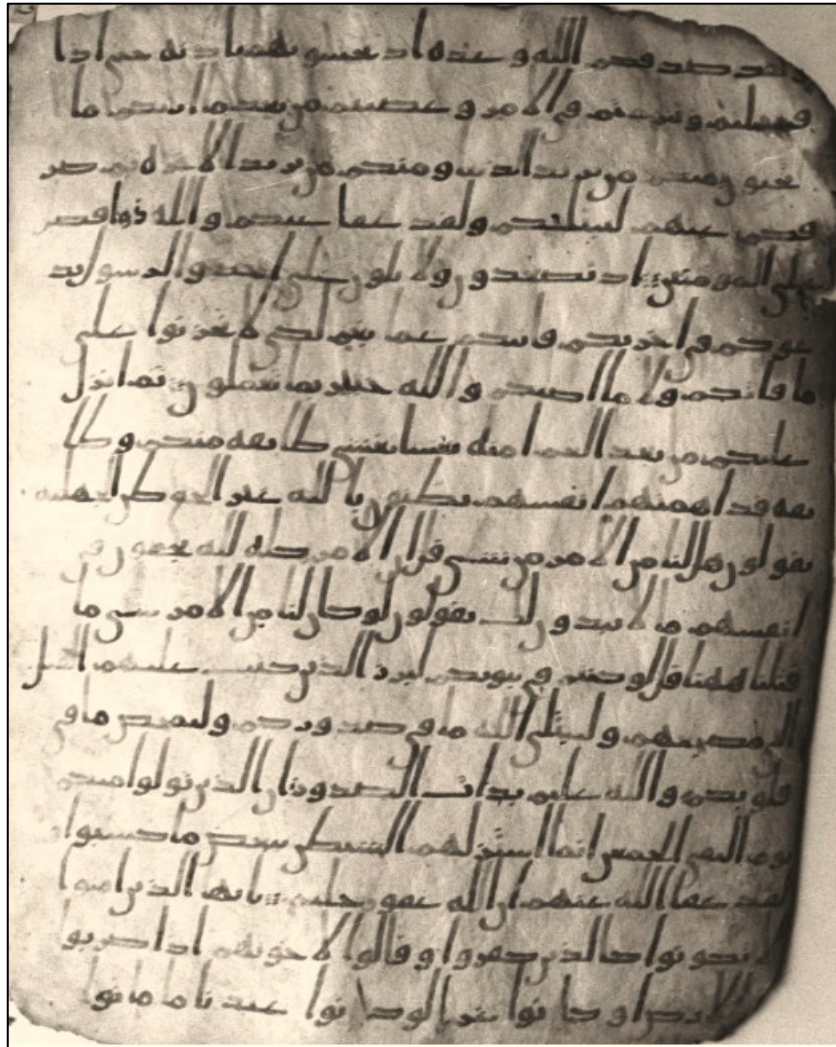 ولقد صدقكم الله وعده اذ تحسونهم باذنه حتى اذا
فشلتم وتنزعتم في الامر وعصيتم من بعد ما اريكم ما
تحبون منكم من يريد الدنيا ومنكم من يريد الاخره ثم صر
فكم عنهم ليبتليكم ولقد عفا عنكم والله ذوا فضل
على المومنين اذ تصعدون ولا تلون على احد والرسول يد
عوكم في اخريكم فاثبكم غما بغم لكي لا تحزنوا على
ما فاتكم ولا ما اصبكم والله خبير بما تعملون ثم انزل
عليكم من بعد الغم امنه نعسا يغشى طايفه منكم وطا
يفه قد اهمتهم انفسهم يظنون بالله غير الحق ظن الجهليه
يقولون هل لنا من الامر من شي قل ان الامر كله لله يخفون في
انفسهم ما لا يبدون لك يقولون لو كان لنا من الامر شي ما
قتلنا ههنا قل لو كنتم في بيوتكم لبرز الذين كتب عليهم القتل
الى مضجعهم وليبتلي الله ما في صدوركم وليمحص ما في
قلوبكم والله عليم بذات الصدور ان الذين تولوا منكم
يوم التقى الجمعن انما استزلهم الشيطن ببعض ما كسبوا و
لقد عفا الله عنهم ان الله غفور حليم يايها الذين امنوا
لا تكونوا كالذين كفروا وقالوا لاخونهم اذا ضربوا
في الارض او كانوا غزى لو كانوا عندنا ما ماتوا